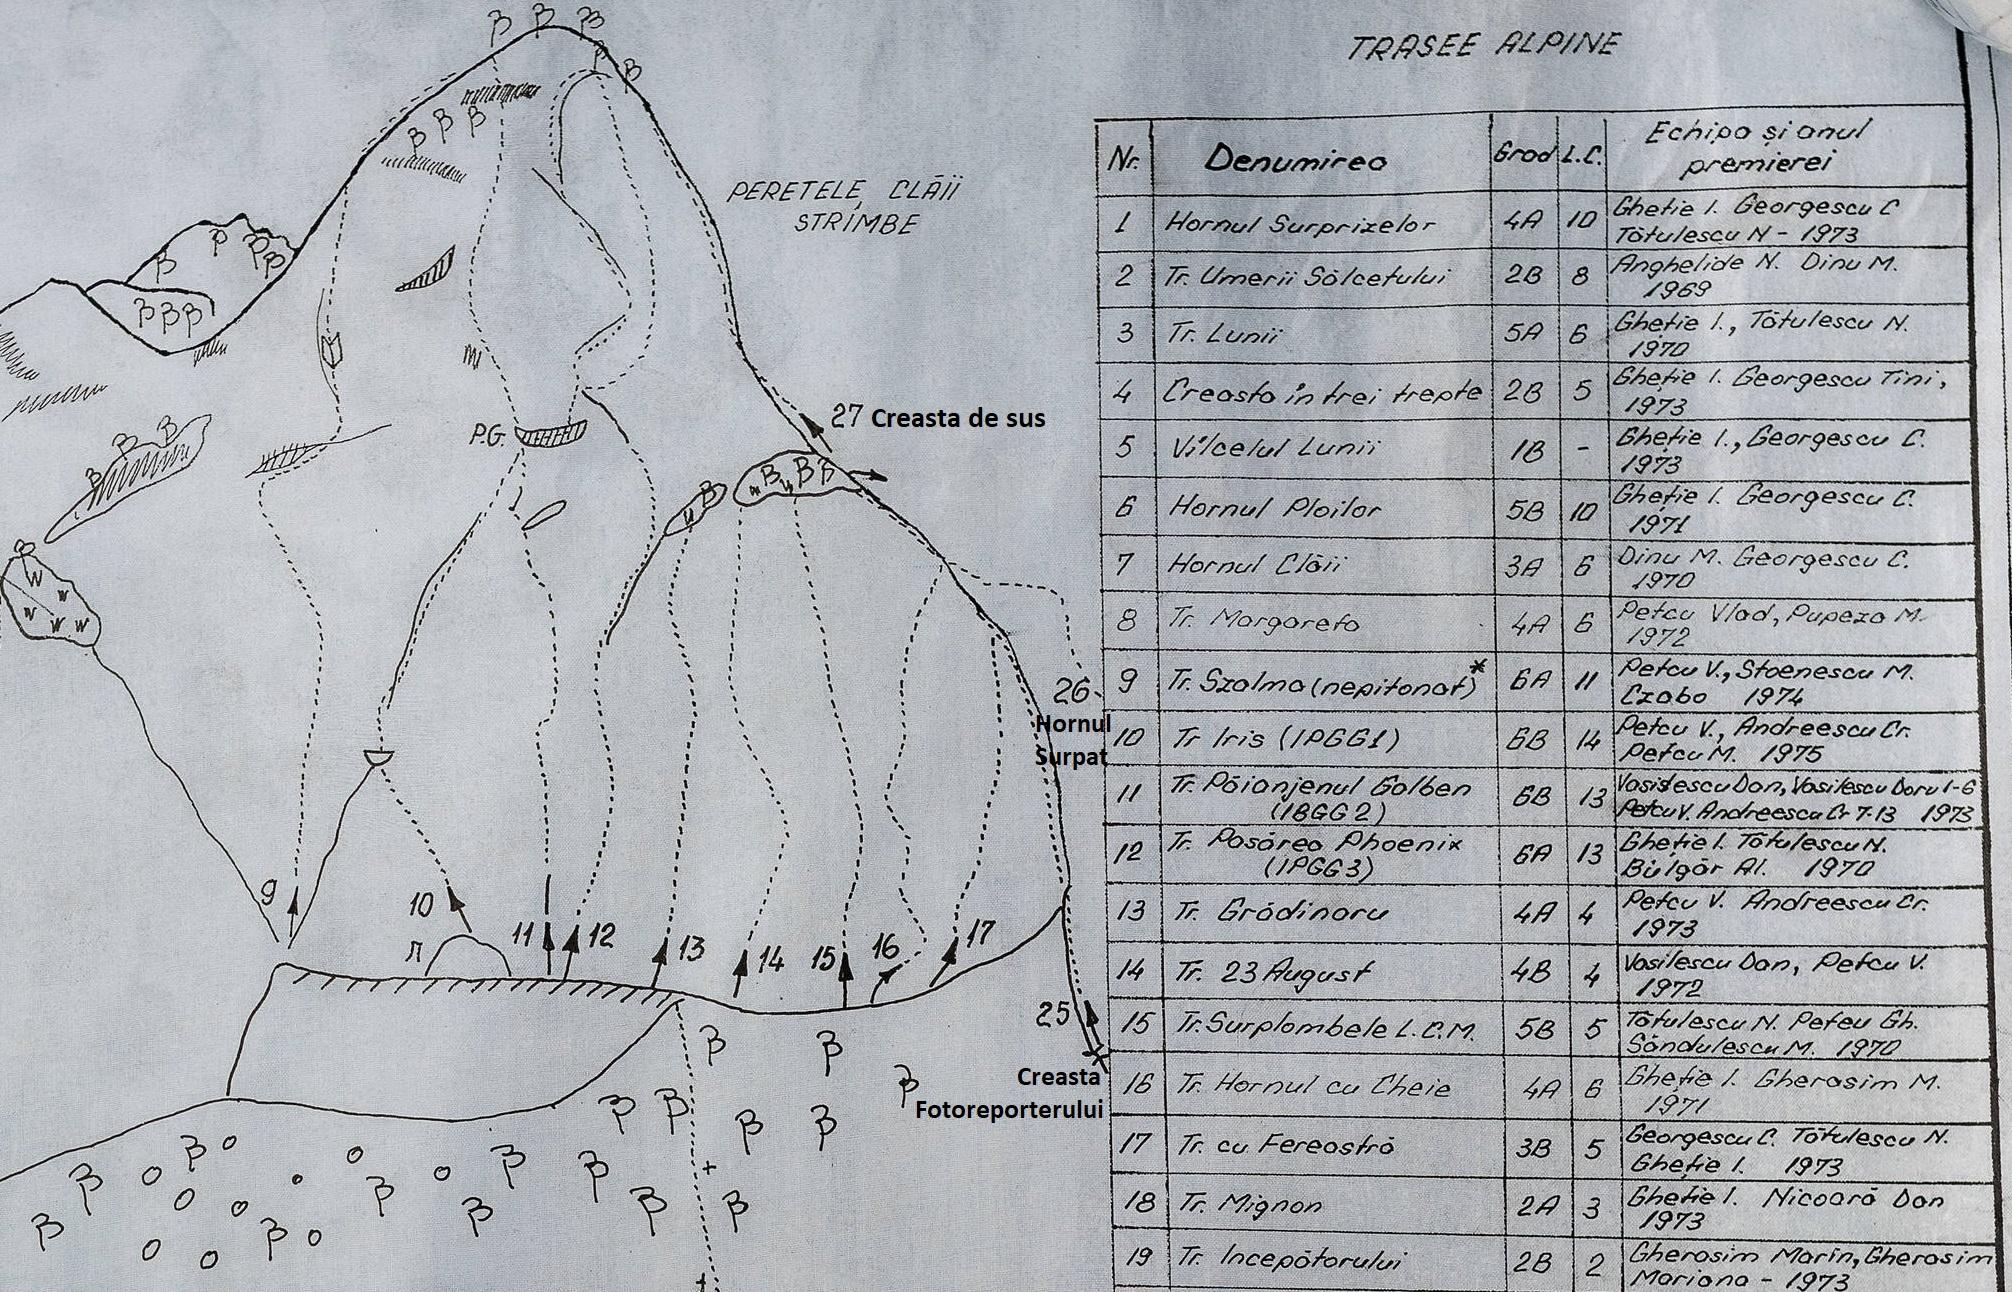 TRASEE ALPINE
PERETELE CLĂII
STRÎMBE
27 Creasta de sus
P.G.
26
Hornul
Surpat
9
10
11
12
13
14
15
16
17
25
Creasta
Fotoreporterului
Nr. Denumirea Grad L.C. Echipa și anul
premierei
1 Hornul Surprizelor 4A 10 Ghetie I. Georgescu C
Tătulescu N - 1973
2 Tr. Umerii Sălcetului 2B 8 Anghelide N. Dinu M.
1969
3 Tr. Lunii 5A 6 Ghetie I., Tătulescu N.
1970
4 Creasta în trei trepte 2B 5 Ghetie I. Georgescu Tini,
1973
5 Vîlcelul Lunii 1B - Ghetie I., Georgescu C.
1973
6 Hornul Ploilor 5B 10 Ghetie I. Georgescu C.
1971
7 Hornul Clăii 3A 6 Dinu M. Georgescu C.
1970
8 Tr. Margareta 4A 6 Petcu Vlad, Pupeza M.
1972
9 Tr. Szalma (nepitonat)* 6A 11 Petcu V., Stoenescu M.
Czabo 1974
10 Tr Iris (1PGG1) 6B 14 Petcu V., Andreescu Cr.
Petcu M. 1975
11 Tr. Păianjenul Galben 6B 13 Vasilescu Dan, Vasilescu Doru 1-6
(1BGG2) Petcu V. Andreescu Cr 7-13 1973
12 Tr. Pasărea Phoenix 6A 13 Ghetie I. Tătulescu N.
(1PGG3) Bulgăr Al. 1970
13 Tr. Grădinaru 4A 4 Petcu V. Andreescu Cr.
1973
14 Tr. 23 August 4B 4 Vasilescu Dan, Petcu V.
1972
15 Tr. Surplombele L.C.M. 5B 5 Tătulescu N. Gh.
Săndulescu M. 1970
16 Tr. Hornul cu Cheie 4A 6 Ghetie I. Gherasim M.
1971
17 Tr. cu Fereastră 3B 5 Georgescu C. Tătulescu N.
Ghetie I. 1973
18 Tr. Mignon 2A 3 Ghetie I. Nicoară Dan
1973
19 Tr. Incepătorului 2B 2 Gherasim Marin, Gherasim
Mariana - 1973